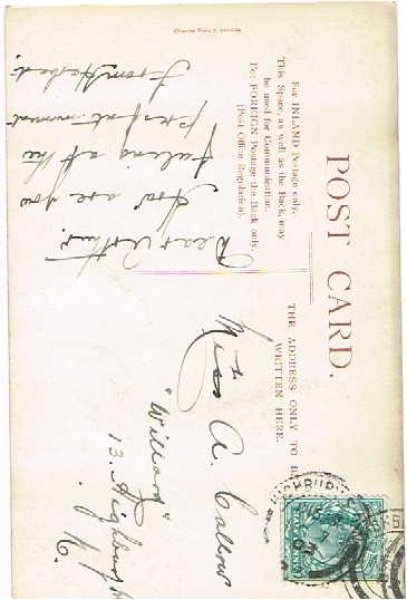 POST CARD.
For INLAND Postage only,
This Space, as well as the Back, may
be used for Communication.
For FOREIGN Postage the Back only.
(Post Office Regulation).
THE ADDRESS ONLY TO BE
WRITTEN HERE.
Dear Arthur.
How are you
fealing at the
present moment
From Herbert
A. Callow
"Willow"
13. Highbury
N.
HIGHBURY